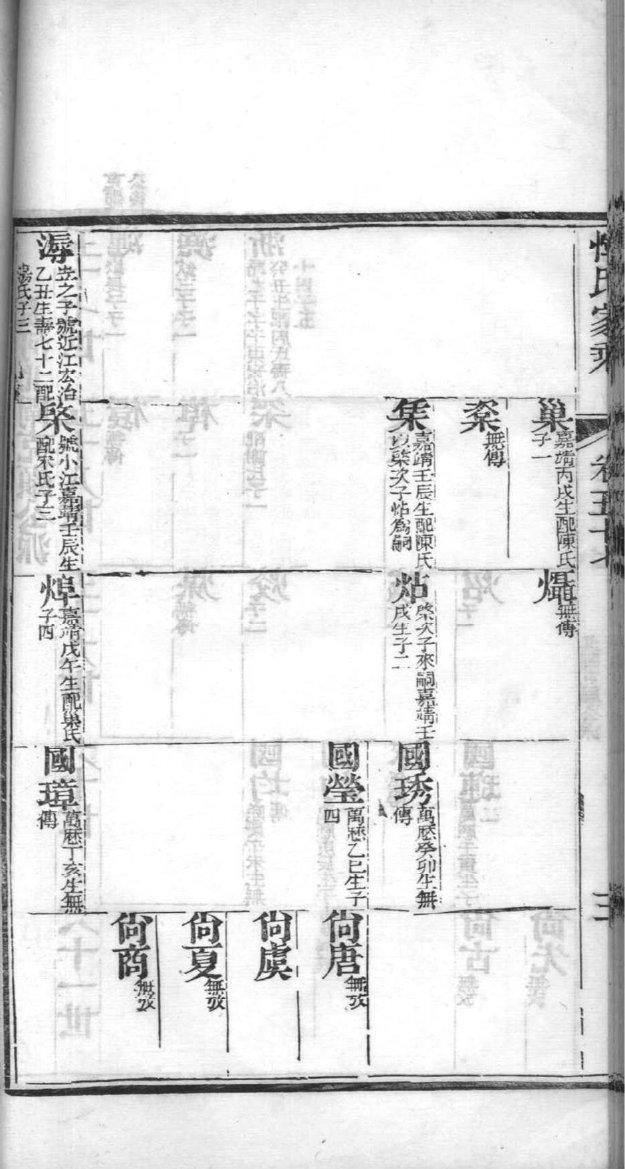 惲氏家乘
卷五十七
三
巢
嘉靖丙戌生配陳氏
子一
㸕
無傳
國琇
萬厯癸卯生無
傳
國瑩
萬厯乙巳生子
四
尙唐
無攷
尙虞
尙夏
無攷
尙商
無攷
無傳
嘉靖壬辰生配陳氏
以棨次子炶爲嗣
炶
棨次子來嗣嘉靖壬
戌生子二
溽
之子號近江宏治
乙丑生壽七十二配
湯氏子三
棨
號小江嘉靖壬辰生
配宋氏子三
焯
嘉靖戊午生配巢氏
子四
國璋
萬厯丁亥生無
傳